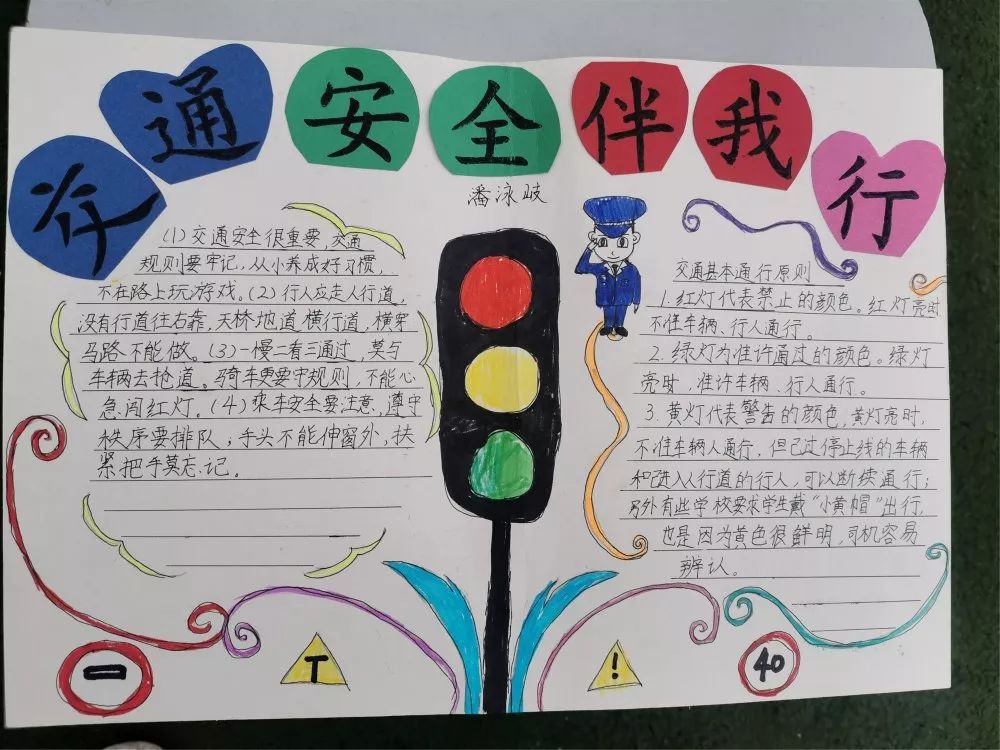 交通安全伴我行
潘泳岐
(1)交通安全很重要,交通
规则要牢记,从小养成好习惯,
不在路上玩游戏。(2)行人应走人行道,
没有行道往右靠,天桥地道横行道,横穿
马路不能做。(3)一慢二看三通过,莫与
车辆去抢道。骑车更要守规则,不能心
急闯红灯。(4)乘车安全要注意,遵守
秩序要排队;手头不能伸窗外,扶
紧把手莫忘记。
交通基本通行原则
1.红灯代表禁止的颜色。红灯亮时,
不准车辆、行人通行。
2.绿灯为准许通过的颜色。绿灯
亮时,准许车辆、行人通行。
3.黄灯代表警告的颜色,黄灯亮时,
不准车辆人通行,但已过停止线的车辆
和进入人行道的行人,可以断续通行;
另外有些学校要求学生戴“小黄帽”出行,
也是因为黄色很鲜明,司机容易
辨认。
T
!
40